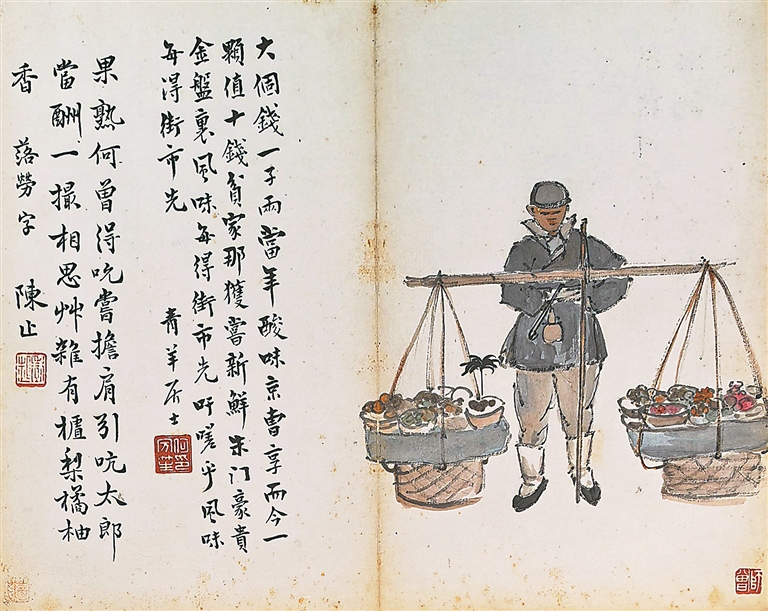 大個錢一子兩當年酸味京曹享而今一
顆值十錢貧家那獲嘗新鮮朱门豪貴
金盤裏風味每得街市先吁嗟乎風味
每得街市先
青羊居士
果熟何曾得吃嘗擔肩引吭太郎
當酬一撮相思艸雜有櫨梨橘柚
香 落勞字 陳止
師曾